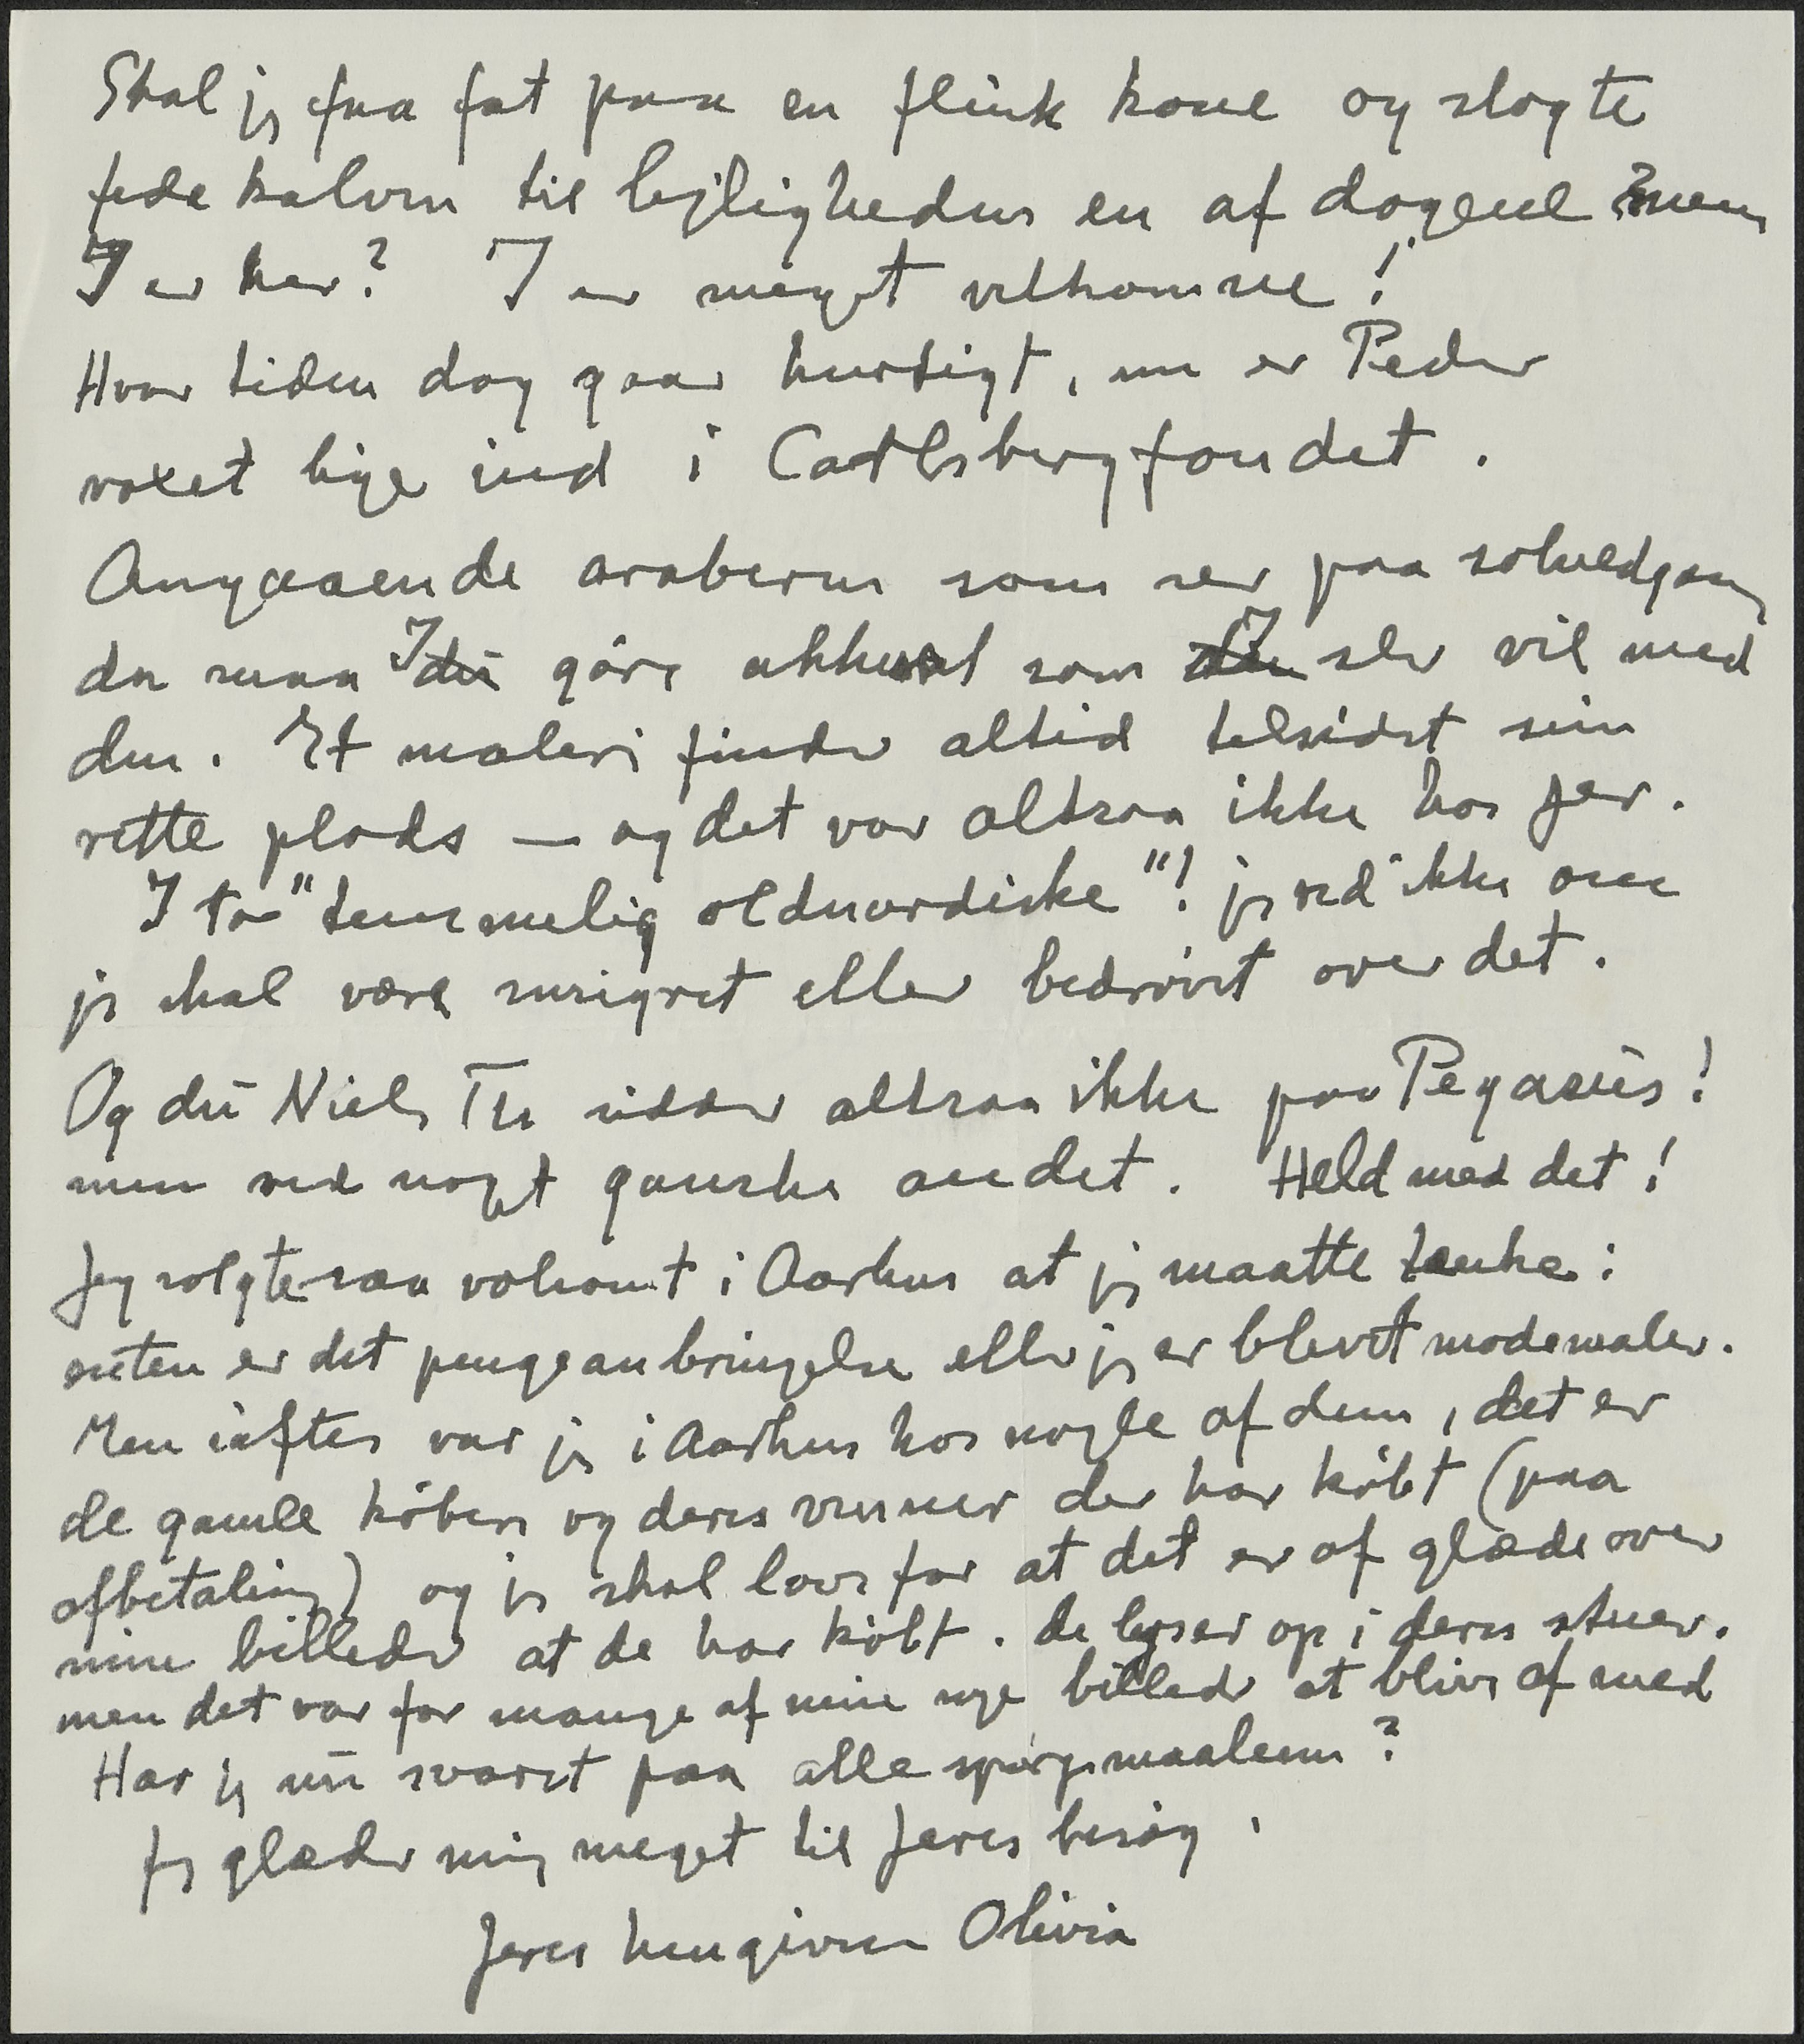 Skal jeg faa fat paa en flink kone og slagte
fedekalven til lejligheden en af dagene mens
I er her? I er meget velkomne!
Hvor tiden dog gaar hurtigt, nu er Peder
voxet lige ind i Carlsbergfondet.
Angaaende araberne som ser paa solnedgang
da maa I du göre akkurat som I selv vil med
den. Et maleri finder altid tilsidst sin
rette plads — og det var altsaa ikke hos Jer.
I to "temmelig oldnordiske"! jeg ved ikke om
jeg skal være misigret eller bedrövet over det.
Og du Niels Th sidder altsaa ikke paa Pegasus!
men ved noget ganske andet. Held med det!
Jeg solgte saa voldsomt i Aarhus at jeg maatte tænke:
enten er det pengeanbringelse eller jeg er blevet modemaler.
Men iaftes var jeg i Aarhus hos nogle af dem, det er
de gamle köbere og deres venner der har köbt (paa
afbetaling) og jeg skal love for at det er af glæde over
mine billeder at de har köbt. de lyser op i deres stuer.
men det var for mange af mine nye billeder at blive af med
Har jeg nu svaret paa alle spörgsmaalene?
Jeg glæder mig meget til Jeres besög.
Jeres hengivne Olivia